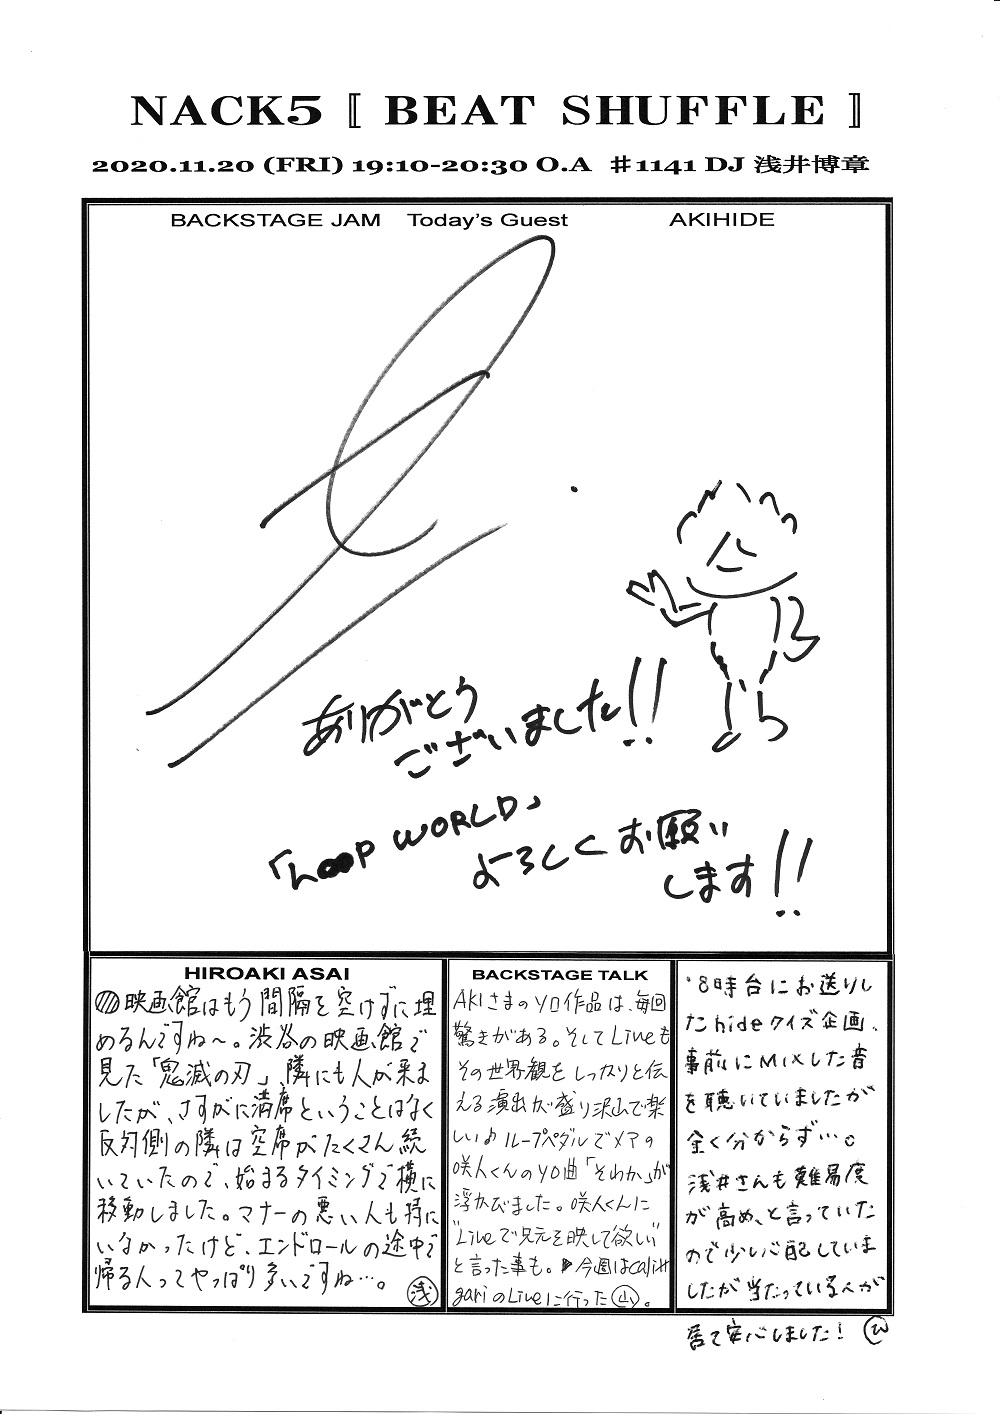 NACK5 〚 BEAT SHUFFLE 〛
2020.11.20 (FRI) 19:10-20:30 O.A ♯1141 DJ 浅井博章
BACKSTAGE JAM Today's Guest AKIHIDE
ありがとう
ございました!!
「LOOP WORLD」
よろしくお願い
します!!
HIROAKI ASAI
映画館はもう間隔を空けずに埋
めるんですね〜。渋谷の映画館で
見た「鬼滅の刃」、隣にも人が来ま
したが、さすがに満席ということはなく
反対側の隣は空席がたくさん続
いていたので、始まるタイミングで横に
移動しました。マナーの悪い人も特に
いなかったけど、エンドロールの途中で
帰る人ってやっぱり多いですね…。浅
BACKSTAGE TALK
AKIさまのソロ作品は、毎回
驚きがある。そしてLiveも
その世界観をしっかりと伝
える演出が盛り沢山で楽
しい♪ループペダルでメアの
咲人くんのソロ曲「それか」が
浮かびました。咲人くんに
"Liveで足元を映して欲しい"
と言った事も。▶今週はcali≠
gariのLiveに行った山。
'8時台にお送りし
たhideクイズ企画、
事前にMIXした音
を聴いていましたが
全く分からず…。
浅井さんも難易度
が高め、と言っていた
ので少し心配していま
したが当たっている人が
居て安心しました! ひ